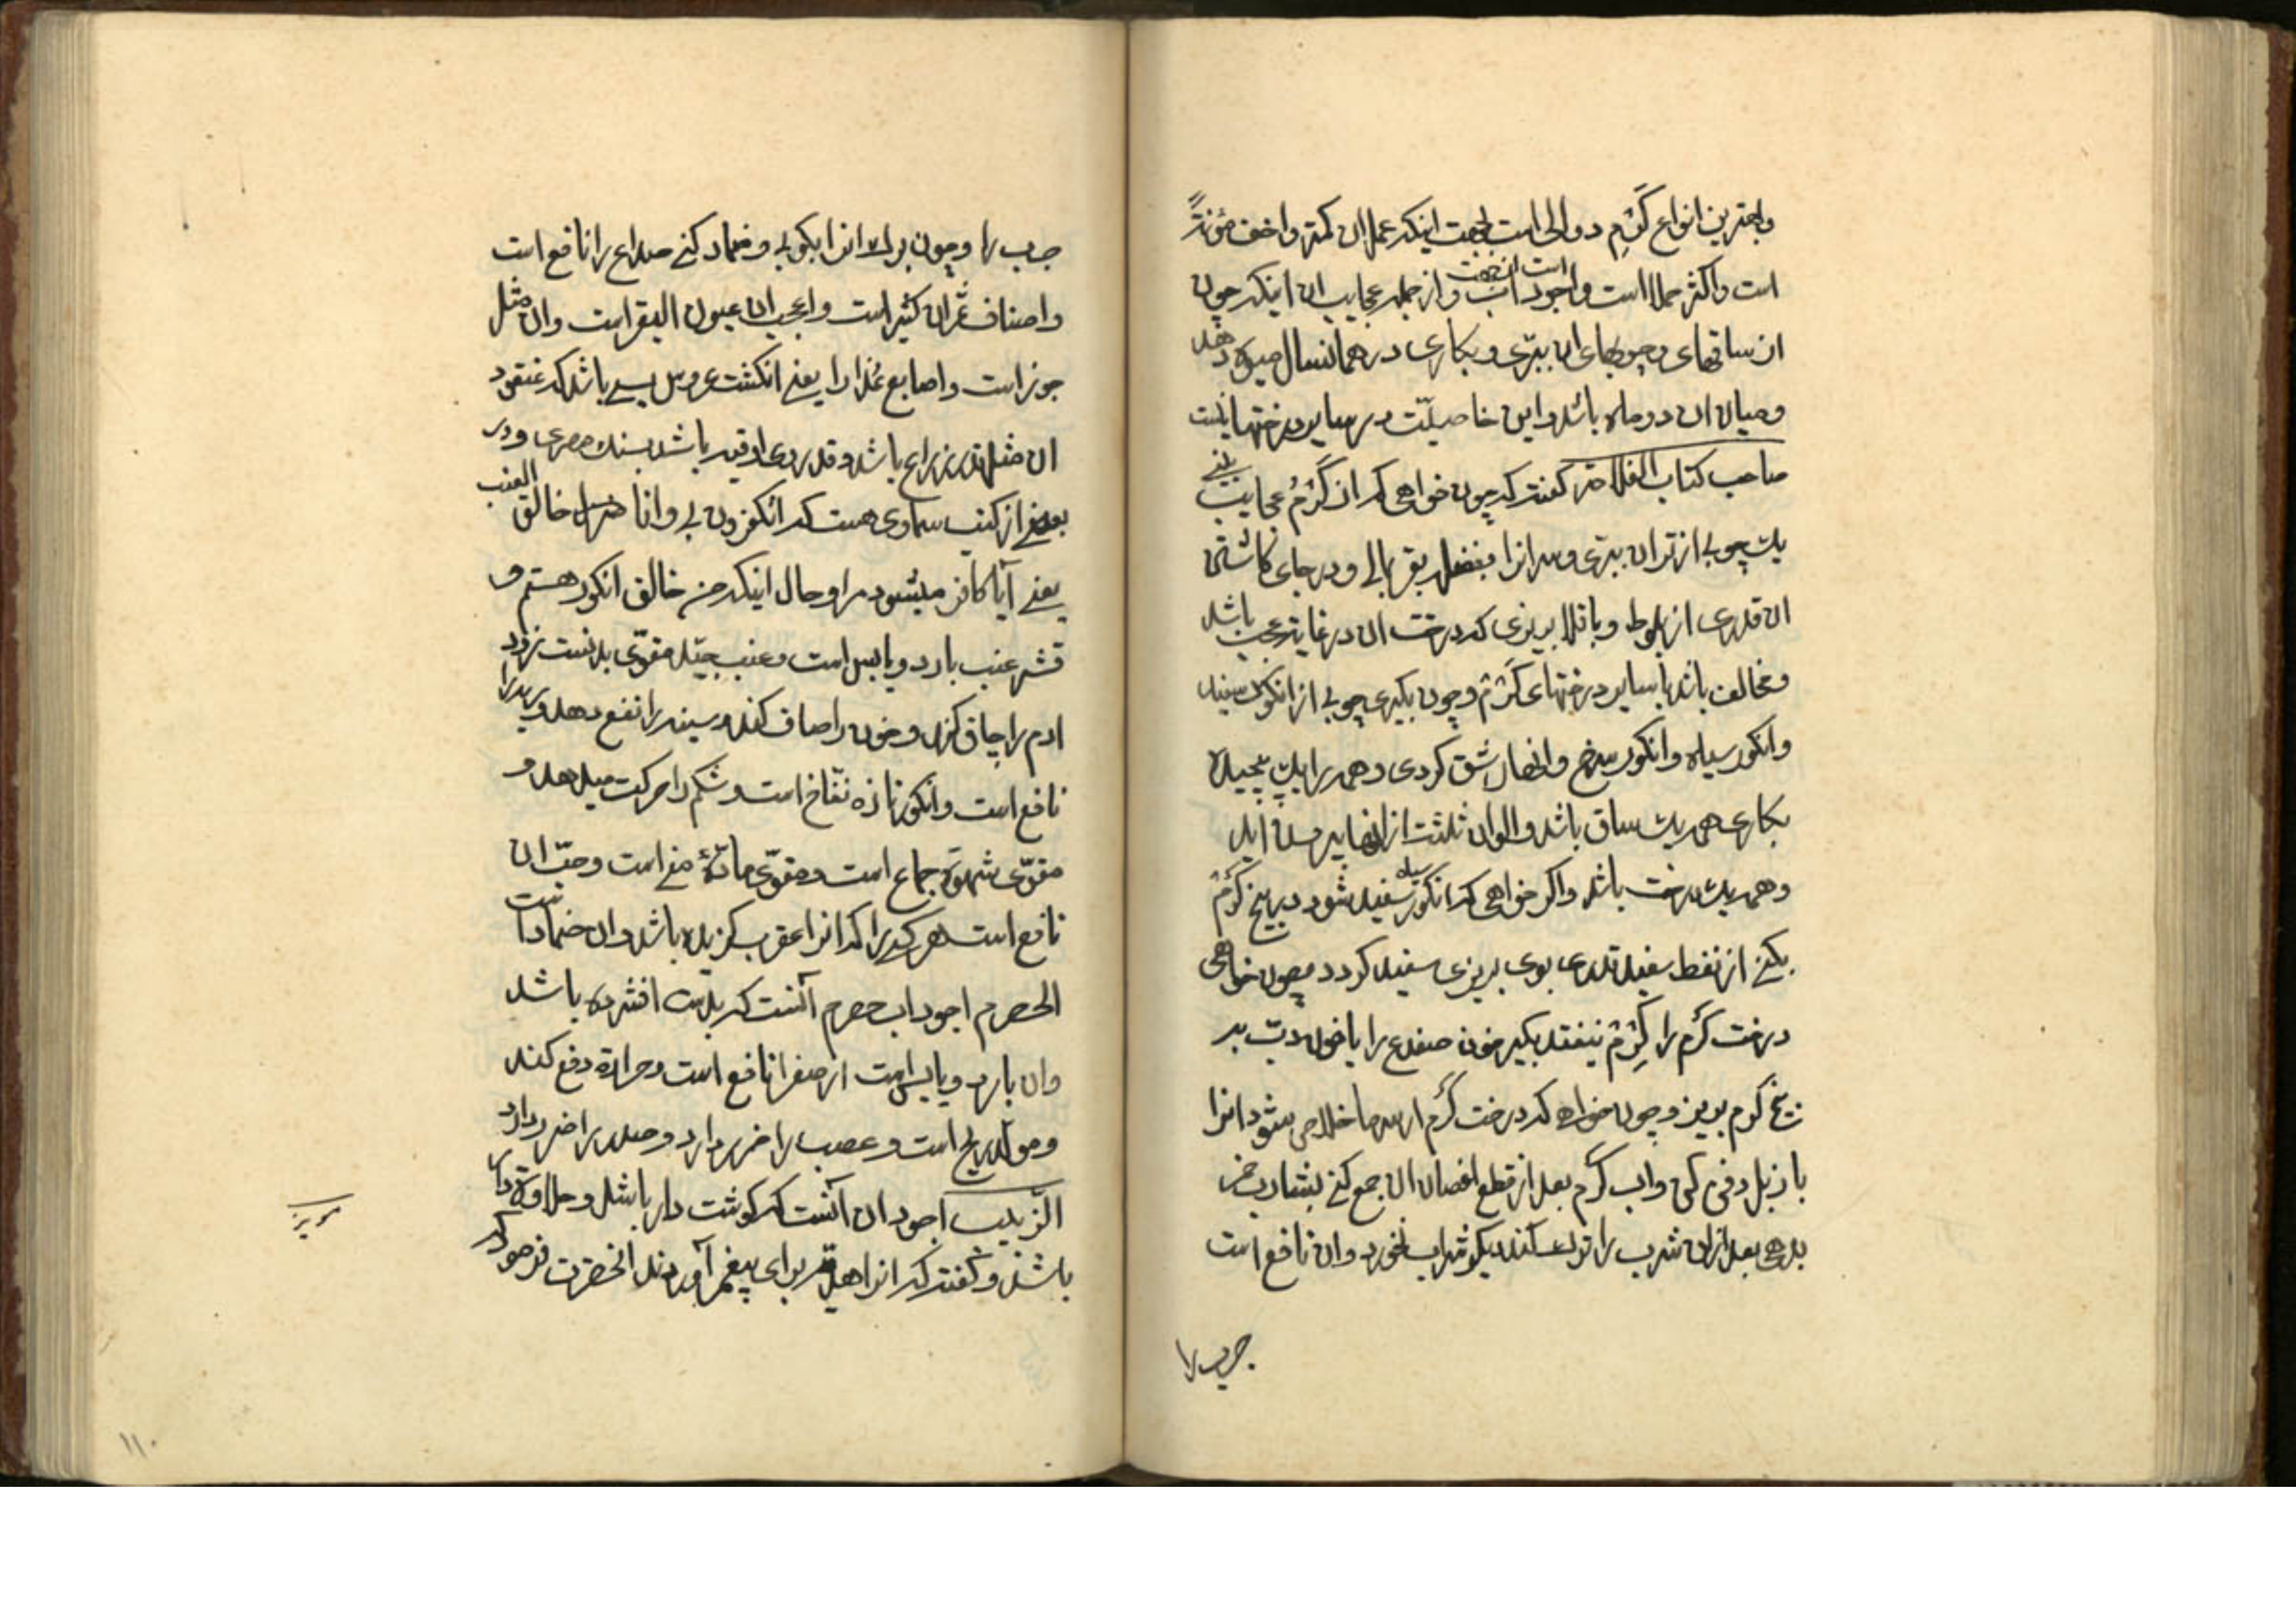 وبهترین انواع کَرْم دوالی است بجهت اینکه عمل ان کمتر واخف مؤنةً
است واکثر حملا است واجود است از جهت آب واز جمله عجایب ان اینکه چون
از ساقهای وچوبهای ان ببرّی وبکاری در همانسال میوه دهد
ومیان ان دو ماه باشد واین خاصیّت در سایر درختها نیست
صاحب کتاب الفلاحة گفته که چون خواهی که از کَرْم عجایب بینی
یک چوبی از تر ان ببری وسر انرا بفضله بقر بمالی ودر جای کاشتن
ان قدری از بلوط وباقلا بریزی که درخت ان در غایة عجب باشد
ومخالف باشد با سایر درختهای کَرْم وچون بکیری چوبی از انکور سفید
وانکور سیاه وانکور سرخ وانها را شق کردی وهمه را بیک پیچیده
بکاری همه یک ساق باشد والوان ثلثه از انها بیرون اید
وهمه یک درخت باشد واکر خواهی که انکور سیاه سفید شود در بیخ کَرْم
بکنی از نفط سفید قدری بوی بریزی سفید کردد وچون خواهی
درخت کَرْم را کِرْم نیفتد بکیر خون ضفدع را یا خون دب بر
بیخ کرم بریز وچون خواهی که درخت کرم از سرما خلاص شود انرا
با زبل دفن کن واب کرم بعد از قطع اغصان ان جمع کنی بشارب خمر
بدهی بعد ازان شرب را ترک کند دیکر شراب نخورد وان نافع است
جرب را
جرب را وچون برک انرا بکوبی وضماد کنی صداع را نافع است
واصناف ثمر ان کثیر است واعجب ان عیون البقر است وان مثل
جوز است واصابع عذارا یعنی انکشت عروس پس باشد که عنقود
ان مثل ذراع باشد وقدری اوقیه باشد بسنک مصری ودر
بعضی از کتب سماوی هست که اتکفرون بی وانا خالق العنب
یعنی آیا کافر میشوید مرا وحال اینکه من خالق انکور هستم و
قشر عنب بارد ویابس است وعنب جیّد مقوّی بدنست زود
ادم را چاق کند وخون را صاف کند وسینه را نفع دهد وریه را
نافع است وانکور تازه نفّاخ است وشکم را حرکت میدهد و
مقوّی شهوة جماع است ومقوّی مادّهٔ منی است وحبّ ان
نافع است هر کسی را که انرا عقرب کزیده باشد وان ضمادا
الحصرم اجود اب حصرم آنست که بدست افشرده باشد
وان بارد ویابس است از صفرا نافع است وحرارة دفع کند
ومولد ریح است وعصب را ضرر دارد وصدر را ضرر دارد
الزّبیب اجود ان آنست که کوشت دار باشد وحلاوة دار
باشد وگفته که انرا هدیّه برای پیغمبر آوردند انحضرت فرمود که
مویز
۱۱۰